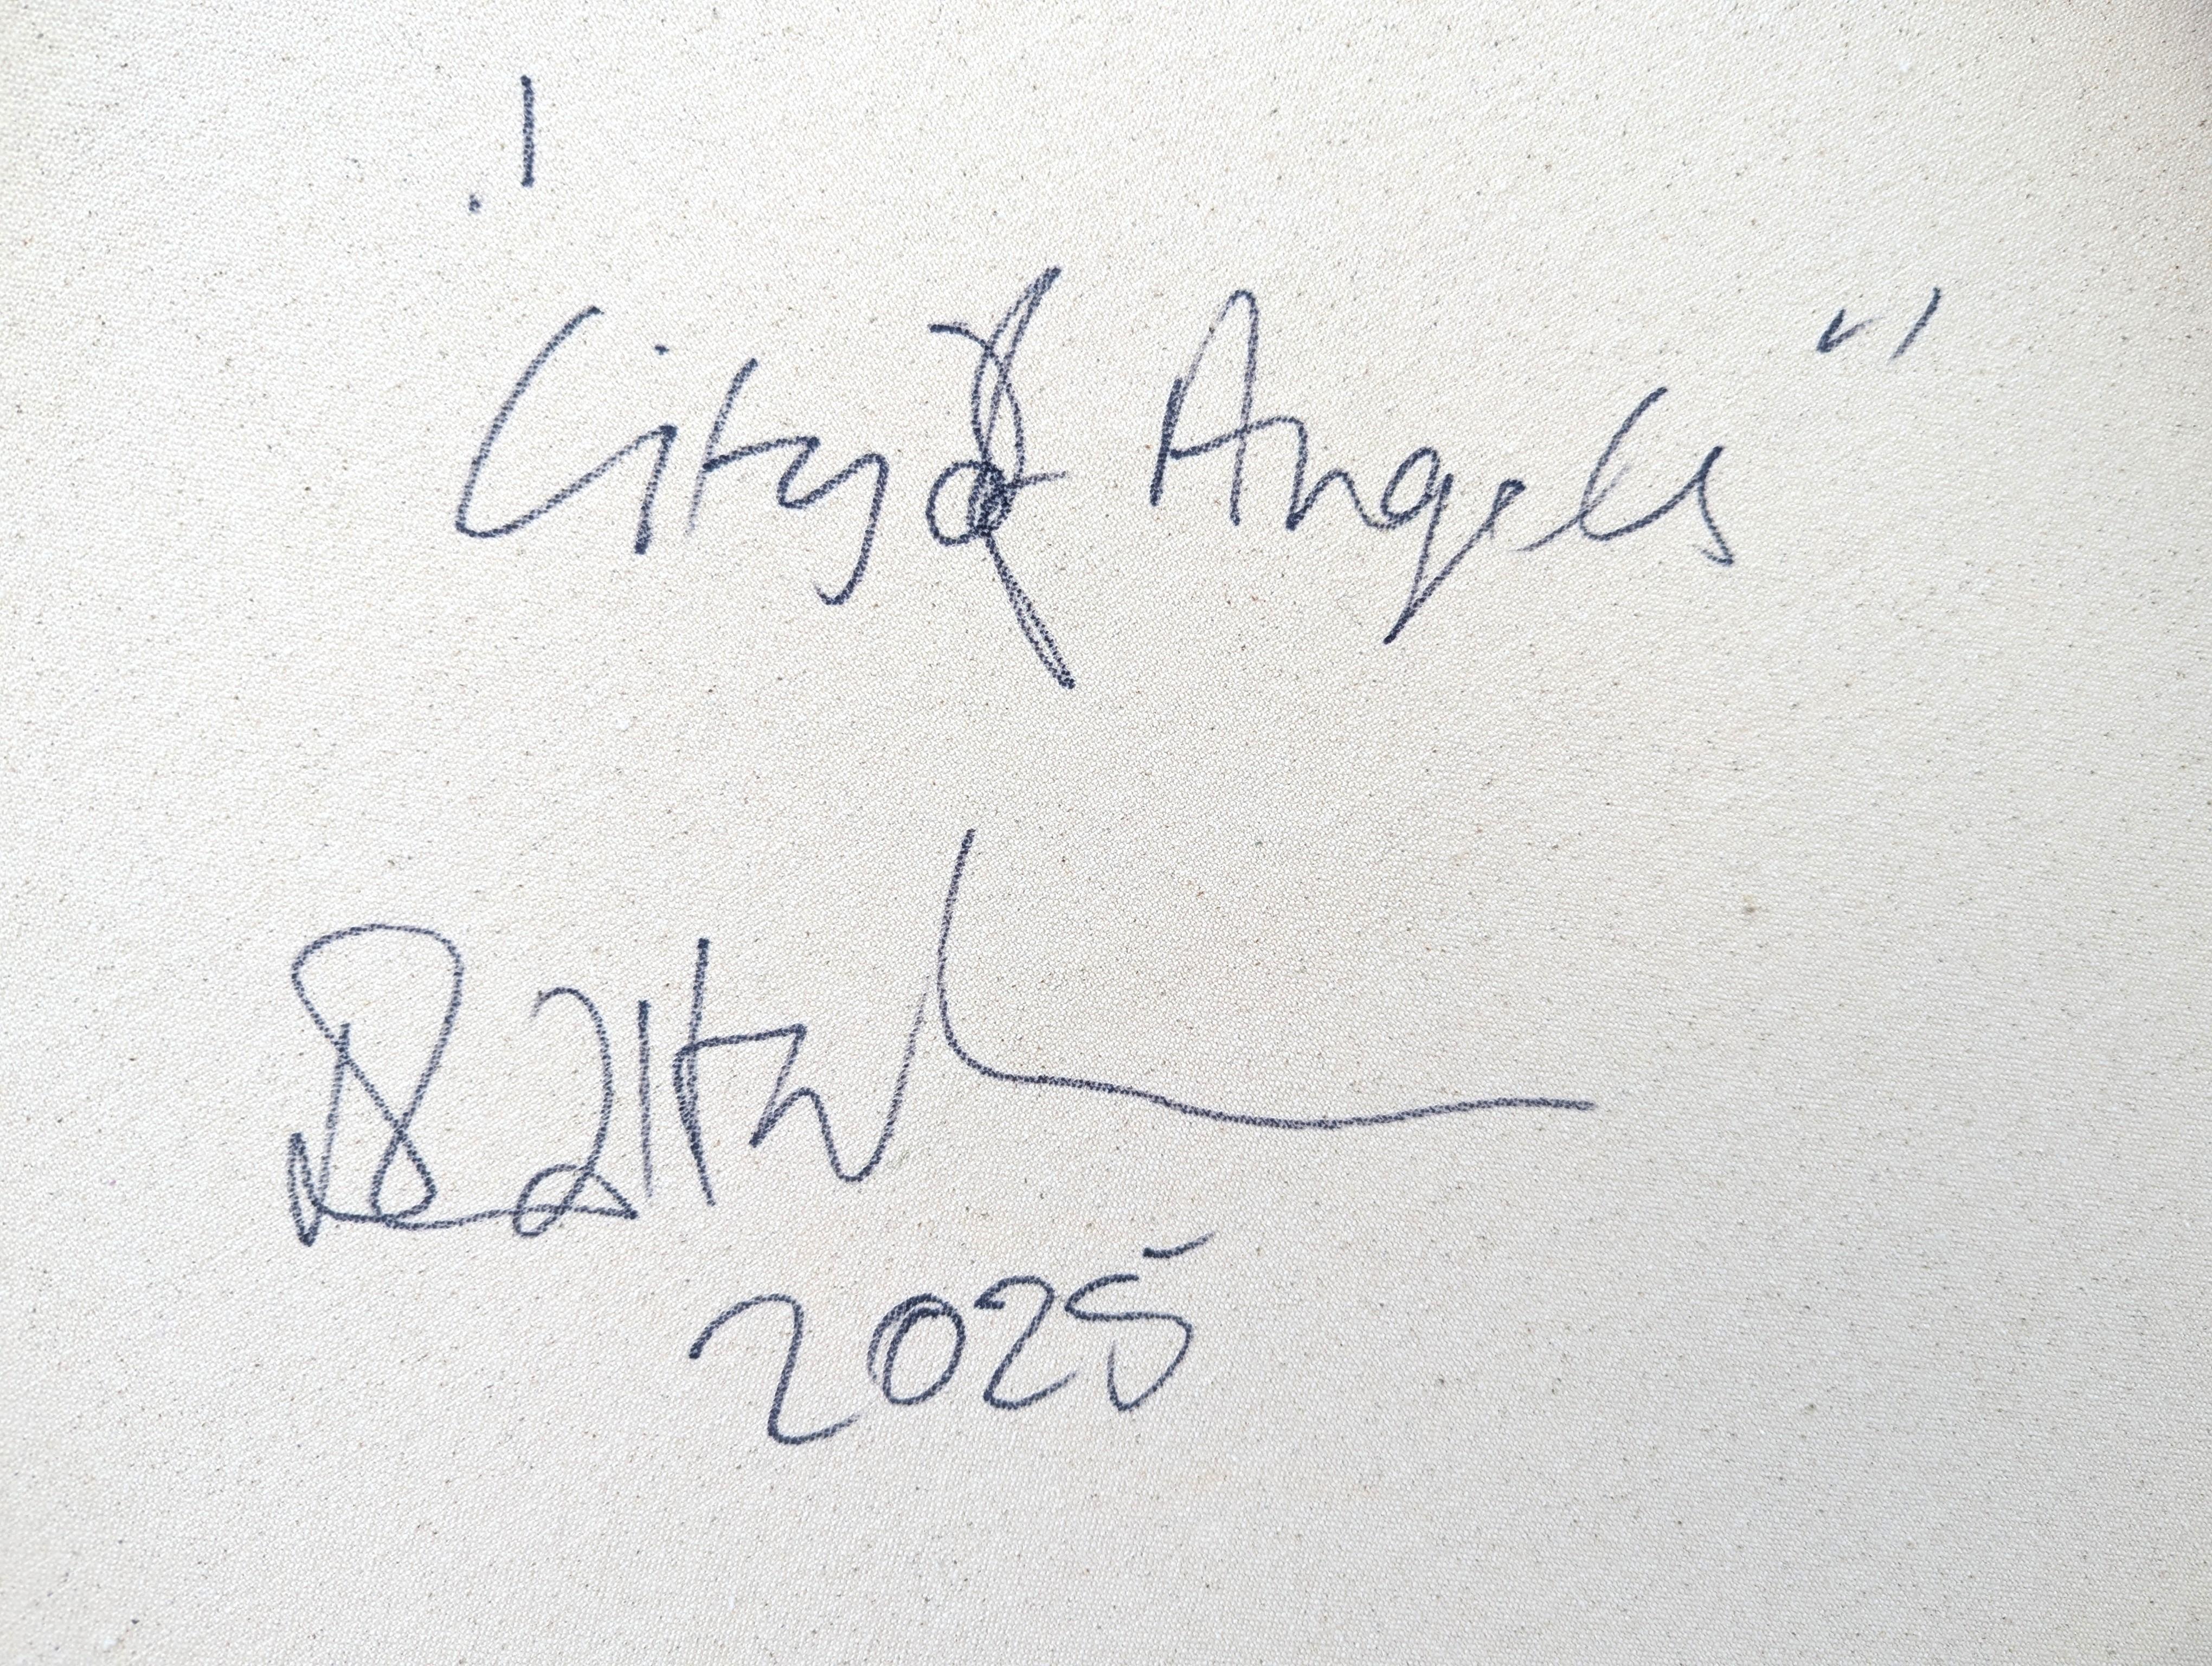 "City of Angels"
2025